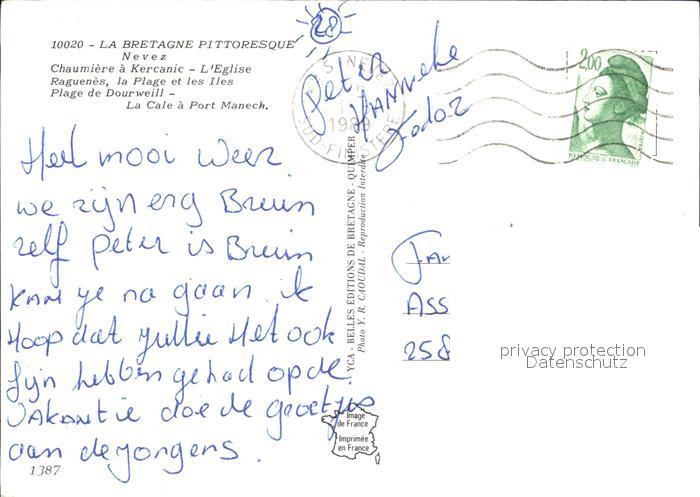 10020 - LA BRETAGNE PITTORESQUE
Nevez
Chaumière à Kercanic - L'Eglise
Raguenès, la Plage et les Iles
Plage de Dourweill -
La Cale à Port Manech.
28
Peter
HANNeke
Fedor
1989
SUD-FINISTERE
2,00
REPUBLIQUE FRANÇAISE
Heel mooi weer
we zijn erg Bruin
zelf peter is Bruin
KAN je na gaan. ik
Hoop dat jullie Het ook
fijn hebben gehad op de
VAKANtie doe de groetjes
aan de jongens.
1387
YCA - BELLES ÉDITIONS DE BRETAGNE - QUIMPER
Photo Y. R. CAOUDAL - Reproduction Interdite
FAV
ASS
258
privacy protection
Datenschutz
Image
de France
Imprimée
en France